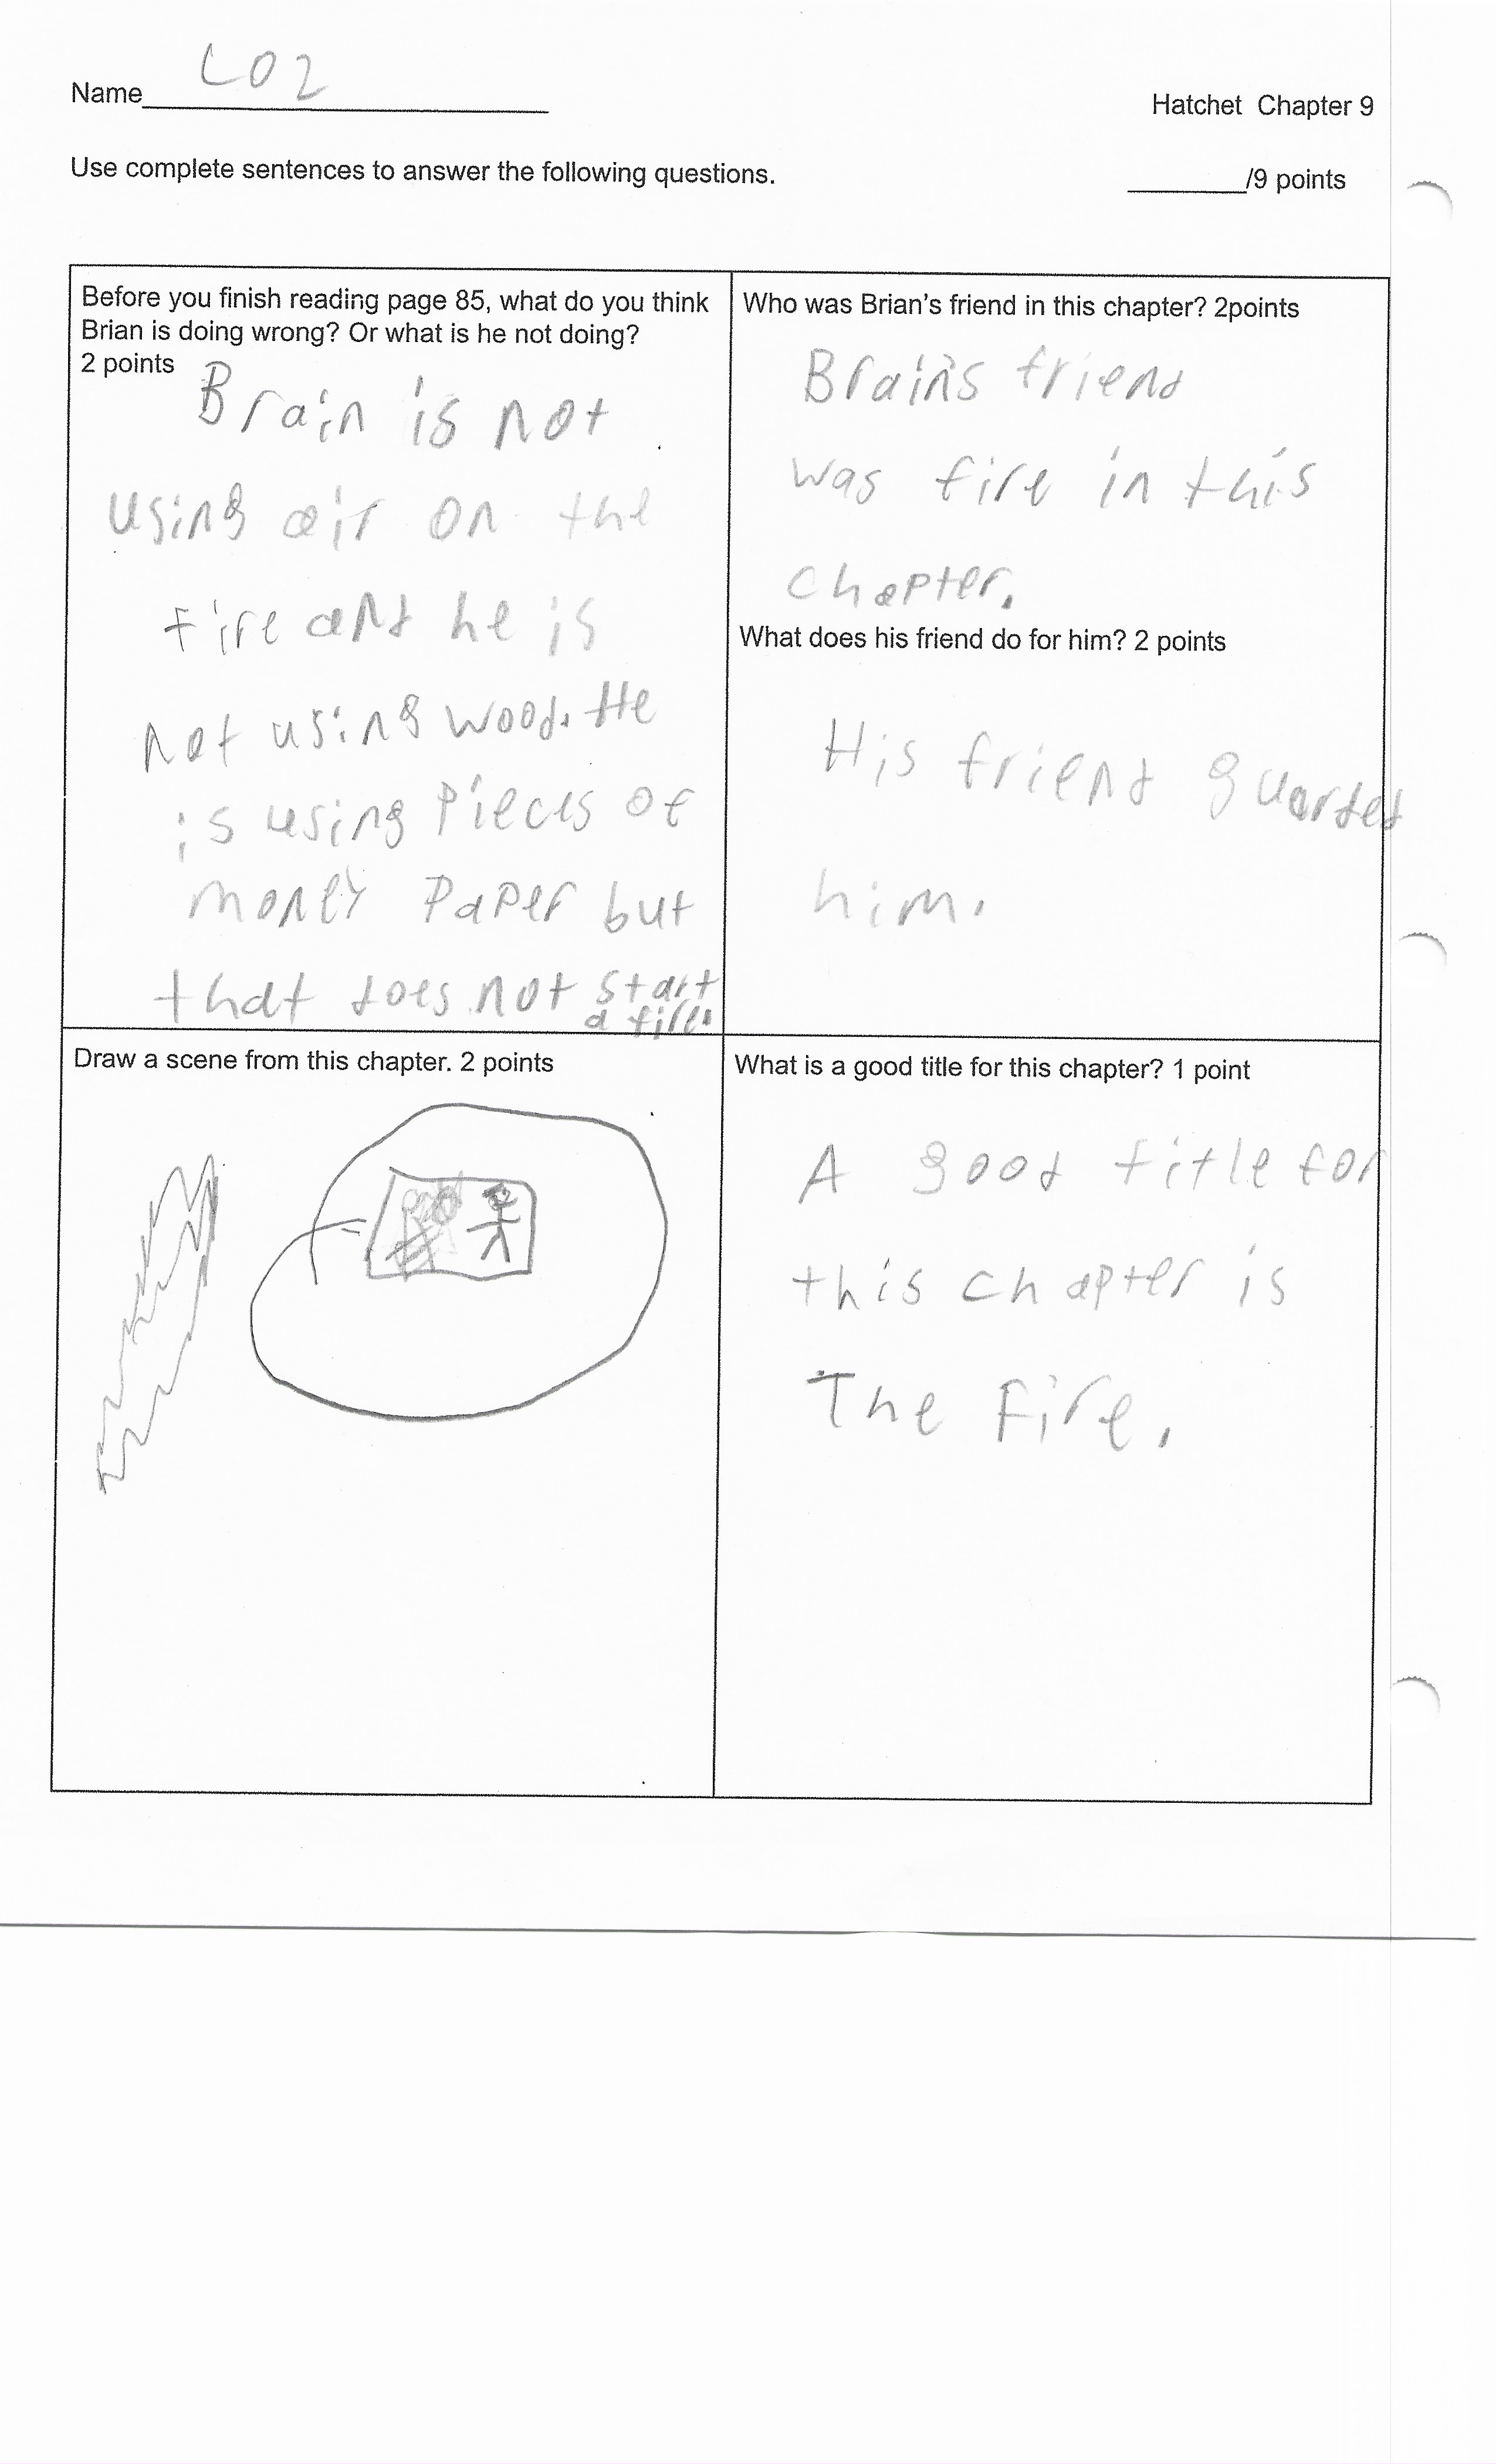 Name LO2
Hatchet Chapter 9
Use complete sentences to answer the following questions.
/9 points
Before you finish reading page 85, what do you think
Brian is doing wrong? Or what is he not doing?
2 points
Brain is not
using air on the
fire and he is
not using wood. He
is using Pieces of
money Paper but
that does not start
a fire.
Who was Brian's friend in this chapter? 2points
Brain's friend
was fire in this
chapter.
What does his friend do for him? 2 points
His friend guarded
him.
Draw a scene from this chapter. 2 points
What is a good title for this chapter? 1 point
A good title for
this chapter is
The Fire.